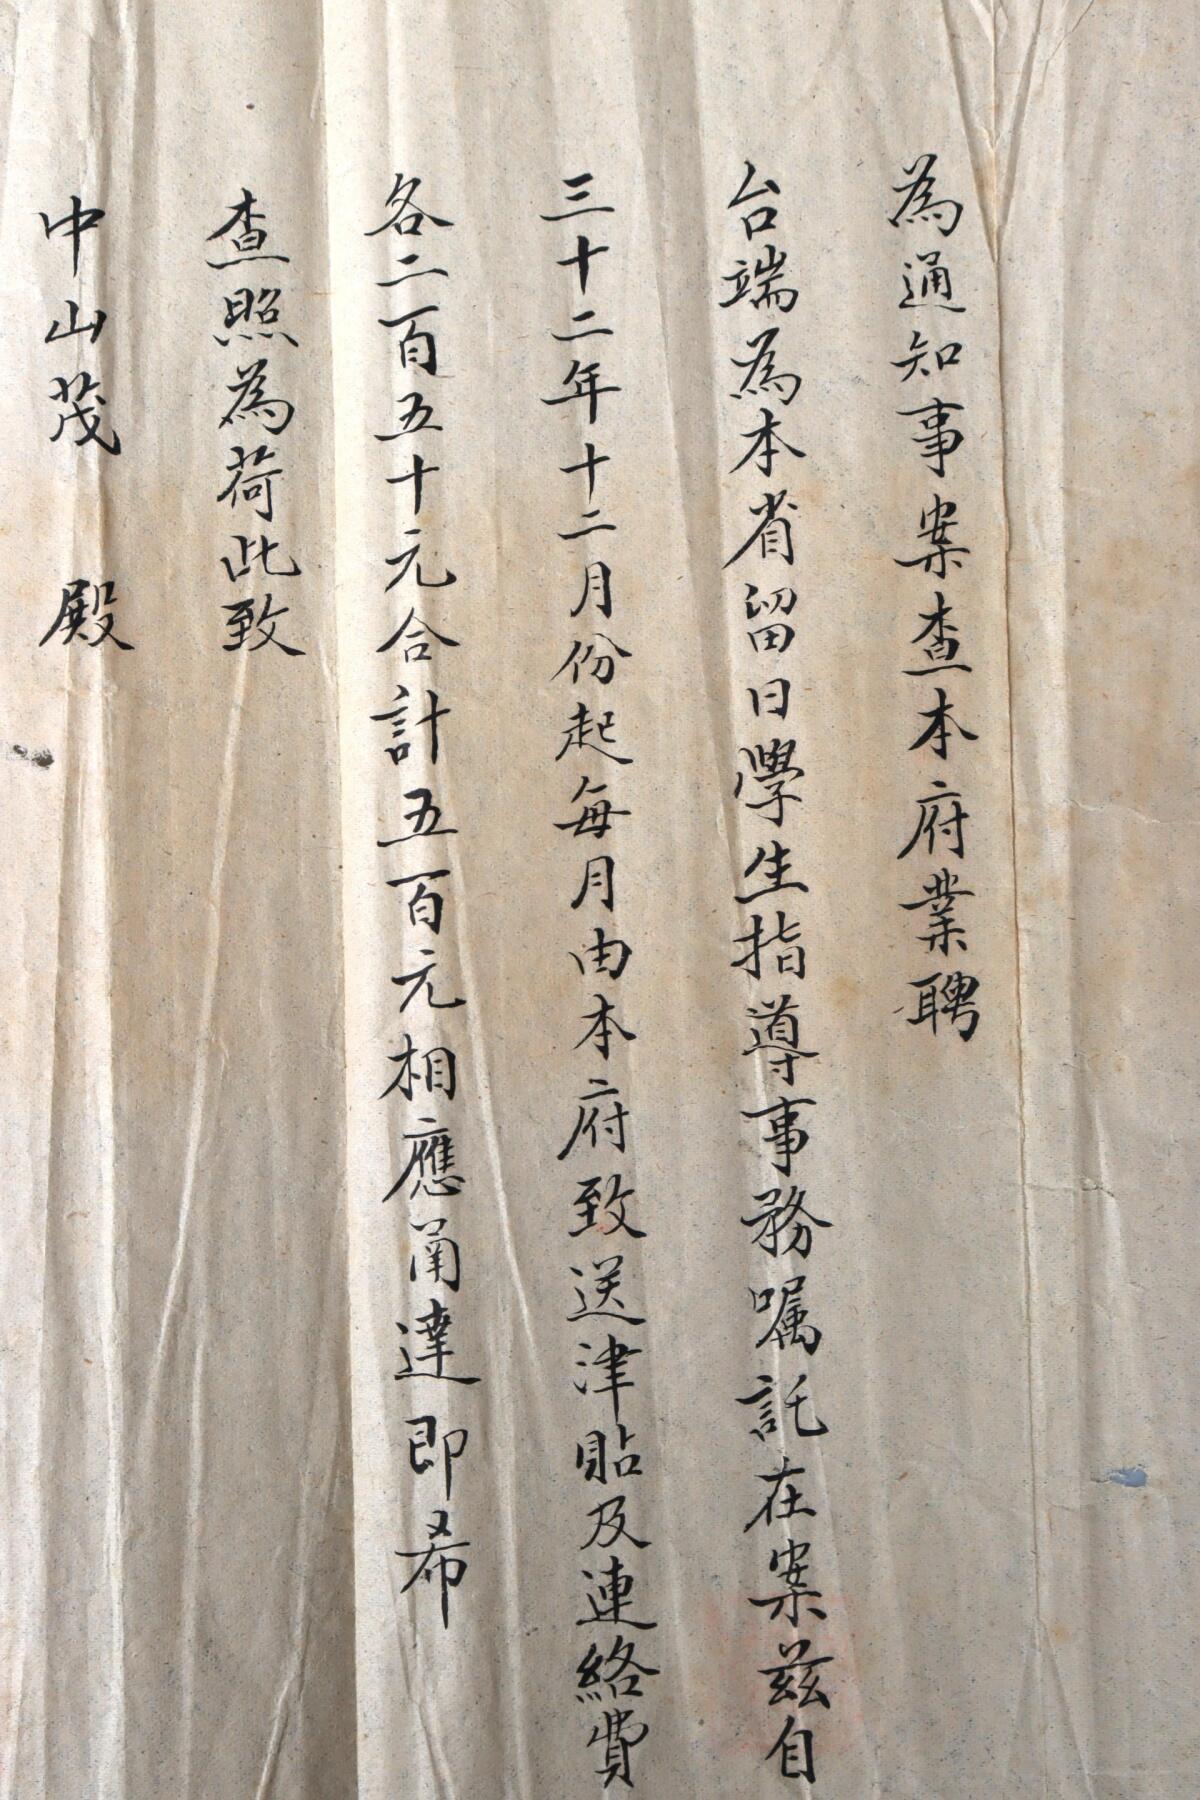 為通知事案查本府業聘
台端為本省留日學生指導事務嘱託在案茲自
三十二年十二月份起每月由本府致送津貼及連絡費
各二百五十元合計五百元相應甭達即希
查照為荷此致
中山茂 殿